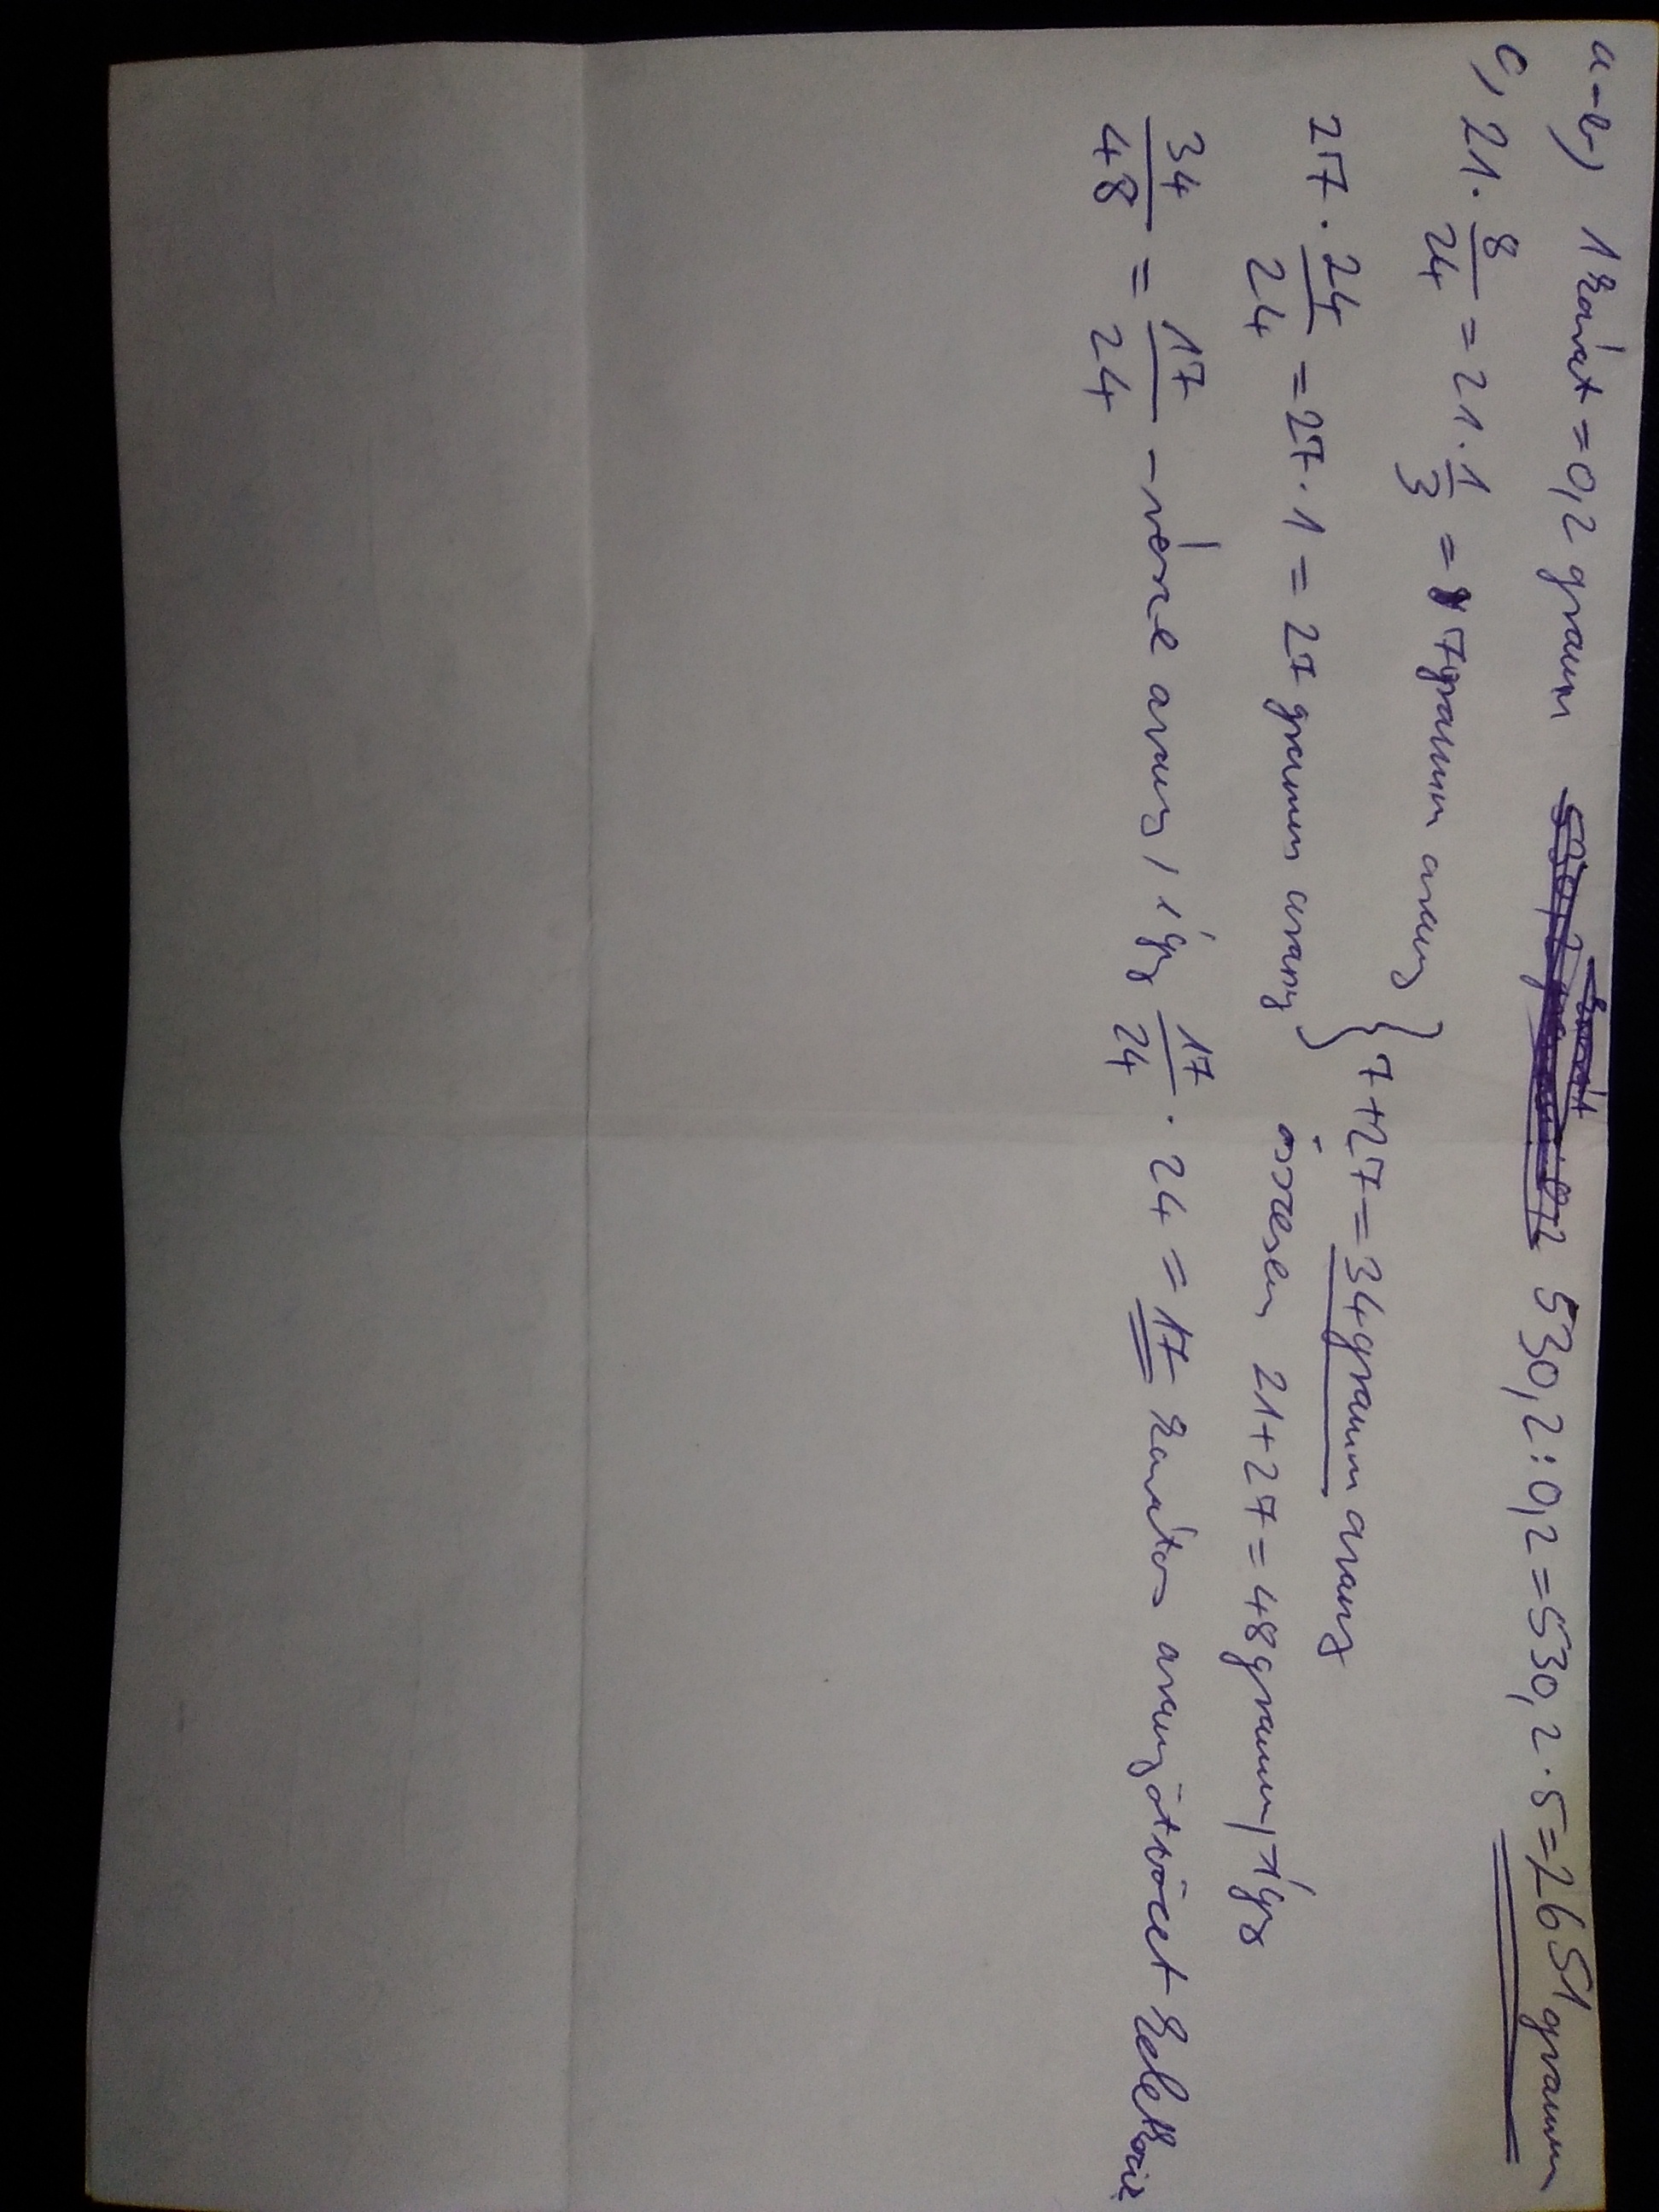 a-b) 1 karát = 0,2 gramm 530,2 : 0,2 = 530,2 · 5 = 2651 gramm
c) 21 · 8/24 = 21 · 1/3 = 7 gramm arany
} 7+27 = 34 gramm arany
27 · 24/24 = 27 · 1 = 27 gramm arany összesen 21+27 = 48 gramm, így
34/48 = 17/24 -része arany, így 17/24 · 24 = 17 karátos aranyötvözet keletkezik